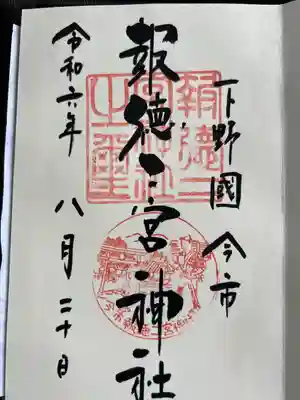 下野國 今市
報徳二宮神社
令和六年 八月二十日
報徳二
宮神社
之璽